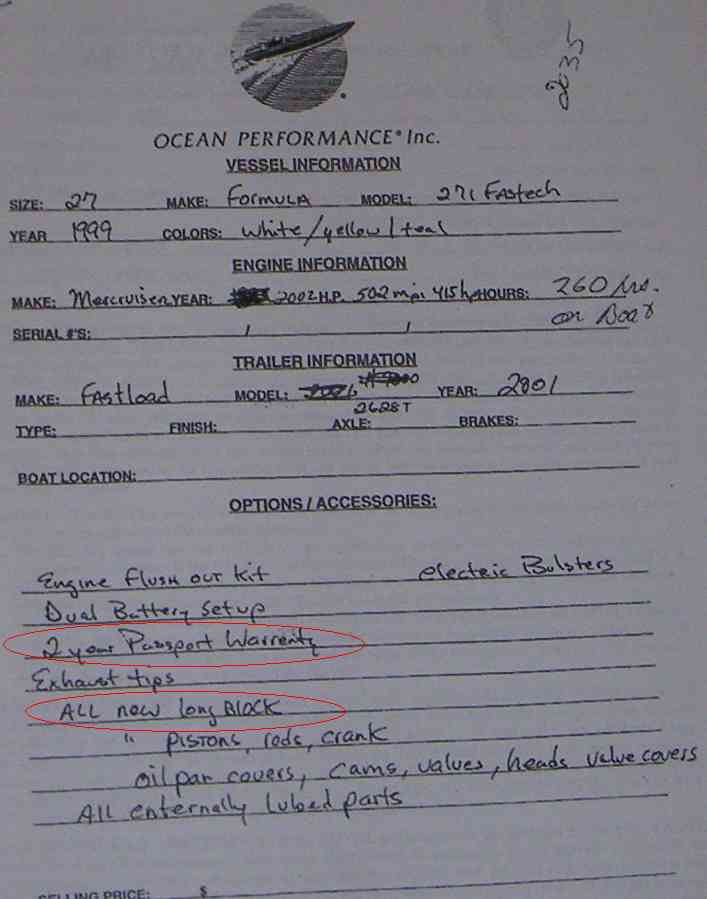 2035
OCEAN PERFORMANCE® Inc.
VESSEL INFORMATION
SIZE: 27 MAKE: Formula MODEL: 271 FAStech
YEAR 1999 COLORS: White/yellow/teal
ENGINE INFORMATION
MAKE: Mercruiser YEAR: 2002 H.P. 502 mpi 415hp HOURS: 260 hrs.
on Boat
SERIAL #'S: / /
TRAILER INFORMATION
MAKE: FAStLoad MODEL: 2628T YEAR: 2001
TYPE: FINISH: AXLE: BRAKES:
BOAT LOCATION:
OPTIONS / ACCESSORIES:
Engine flush out kit electric Bolsters
Dual Battery Setup
2 year Passport Warrenty
Exhaust tips
ALL new long BLOCK
" PISTONS, rods, crank
oil pan covers, cams, valves, heads valve covers
All enternally lubed parts
SELLING PRICE: $